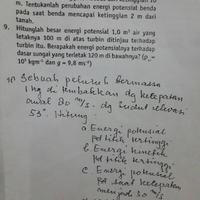 m. Tentukanlah perubahan energi potensial benda
pada saat benda mencapai ketinggian 2 m dari
tanah.
9. Hitunglah besar energi potensial 1,0 m³ air yang
letaknya 100 m di atas turbin ditinjau terhadap
turbin itu. Berapakah energi potensialnya terhadap
dasar sungai yang terletak 120 m di bawahnya? (ρ =
10³ kgm⁻³ dan g = 9,8 ms⁻²)
10. Sebuah peluru bermassa
1 kg di tembakkan dg kecepatan
awal 80 m/s. dg sudut elevasi
53°. Hitung :
a Energi potensial
pd titik tertinggi
b. Energi kinetik
pd titik tertinggi
c. Energi potensial
pd saat kecepatan
menjadi 50 m/s